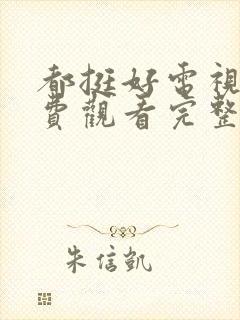 都挺好電視
費觀看完整
朱信凱